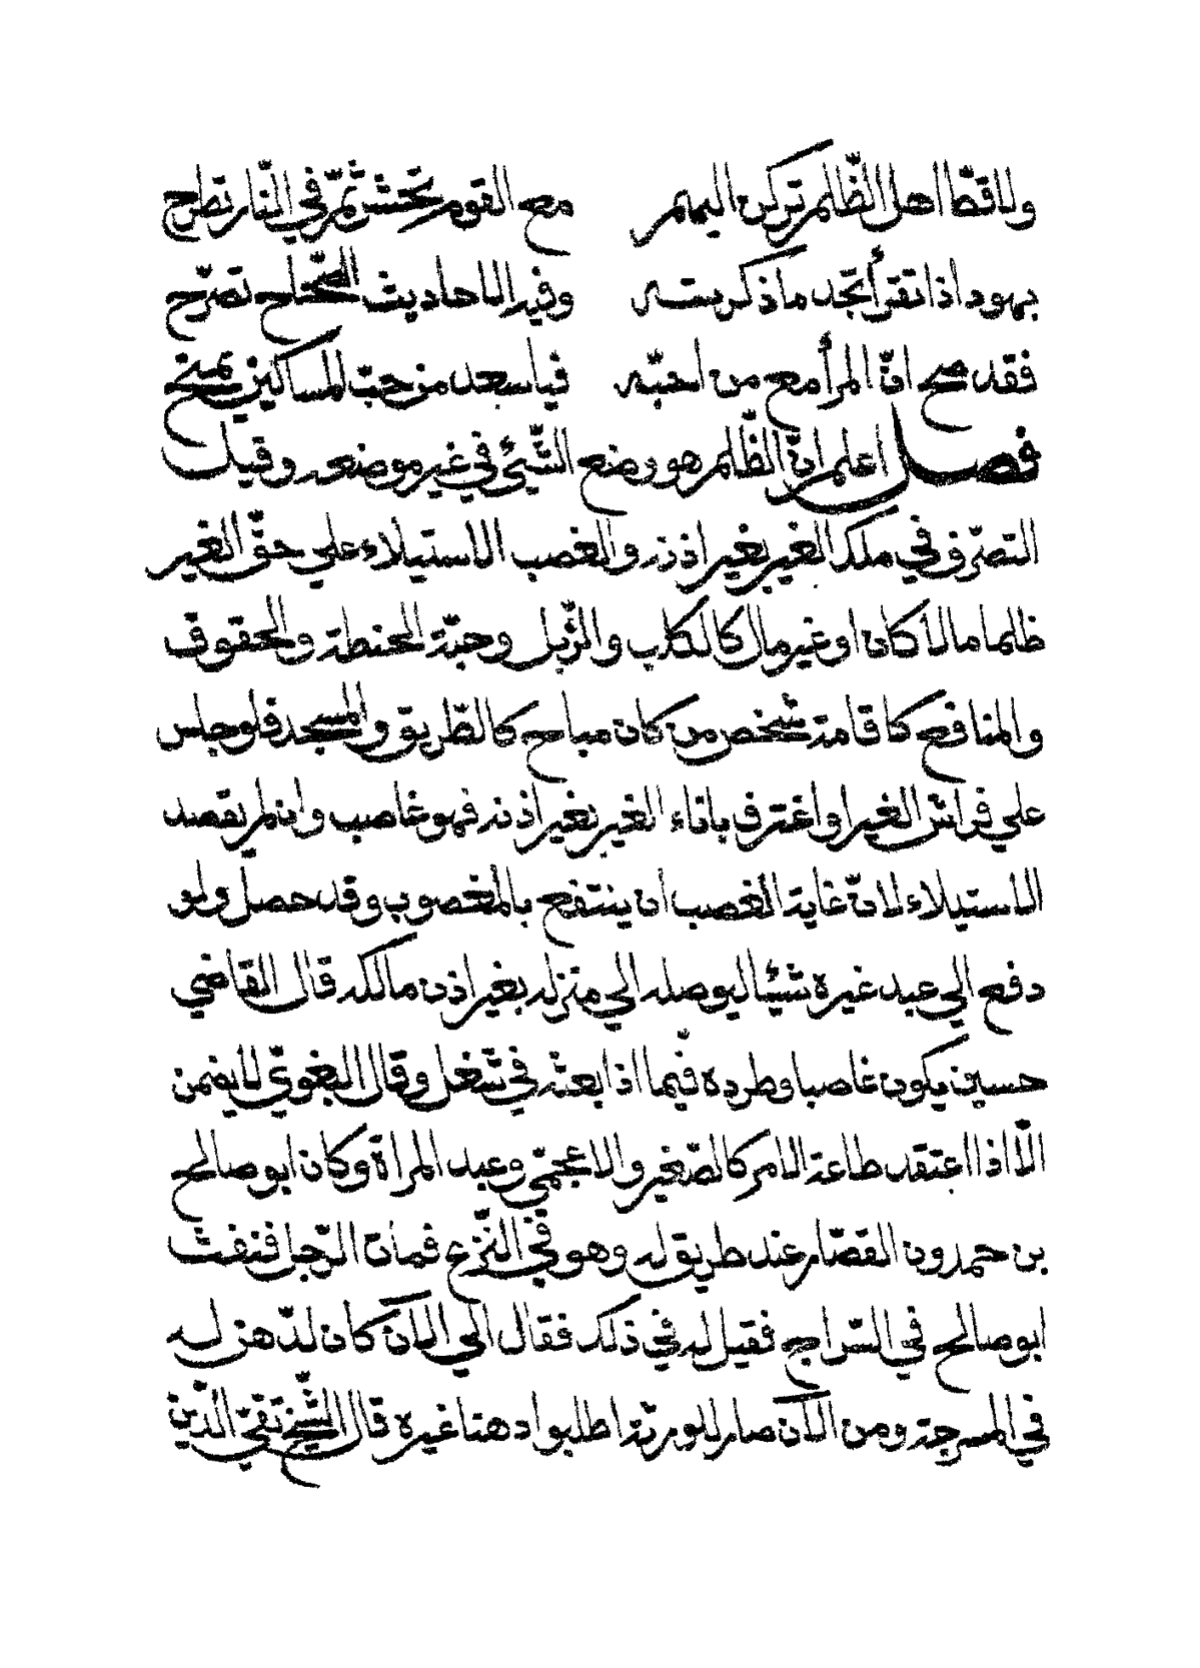 ولا قطّ اهل الظّلم تركن اليهم مع القوم تحشر ثمّ في النّار تطرح
بهود اذا تقرأ تجد ما ذكرته وفي الاحاديث الصّحاح تصرّح
فقد صح انّ المرأ مع من احبّه فيا سعد من حبّ المساكين يمنح
فصل اعلم انّ الظّلم هو وضع الشّيئ في غير موضعه وقيل
التصرّف في ملك الغير بغير اذنه والغصب الاستيلاء علي حقّ الغير
ظلما مالا كان او غير مال كالكلب والزّبل وحبّة الحنطة والحقوق
والمنافع كاقامة شخص من كان مباح كالطّريق والمسجد فلو جلس
علي فراش الغير او اغترف باناء الغير بغير اذنه فهو غاصب وان لم يقصد
الاستيلاء لانّ غاية الغصب ان ينتفع بالمغصوب وقد حصل ولو
دفع الي عبد غيره شيئا ليوصله الي منزله بغير اذن مالكه قال القاضي
حسين يكون غاصبا وطرده فيما اذا بعثه في شغل وقال البغويّ لا يضمن
الّا اذا اعتقد طاعة الامر كالصّغير والاعجمّي وعبد المراة وكان ابو صالح
بن حمدون القصّار عند طريق له وهو في النّزع فمات الرّجل فنفث
ابو صالح في السّراج فقيل له في ذلك فقال الي الآن كان لدّهن له
في المسرجة ومن الآن صار للورثة اطلبوا دهنا غيره قال الشّيخ تقيّ الدّين